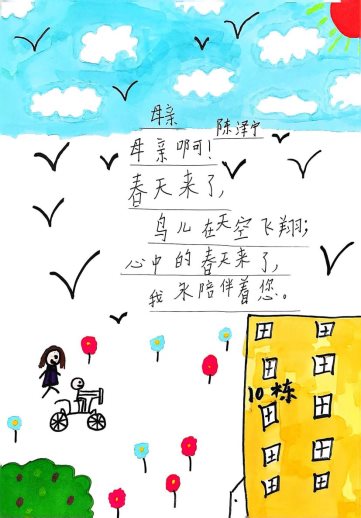 母亲
陈泽宁
母亲啊！
春天来了，
鸟儿在天空飞翔；
心中的春天来了，
我永陪伴着您。
10栋